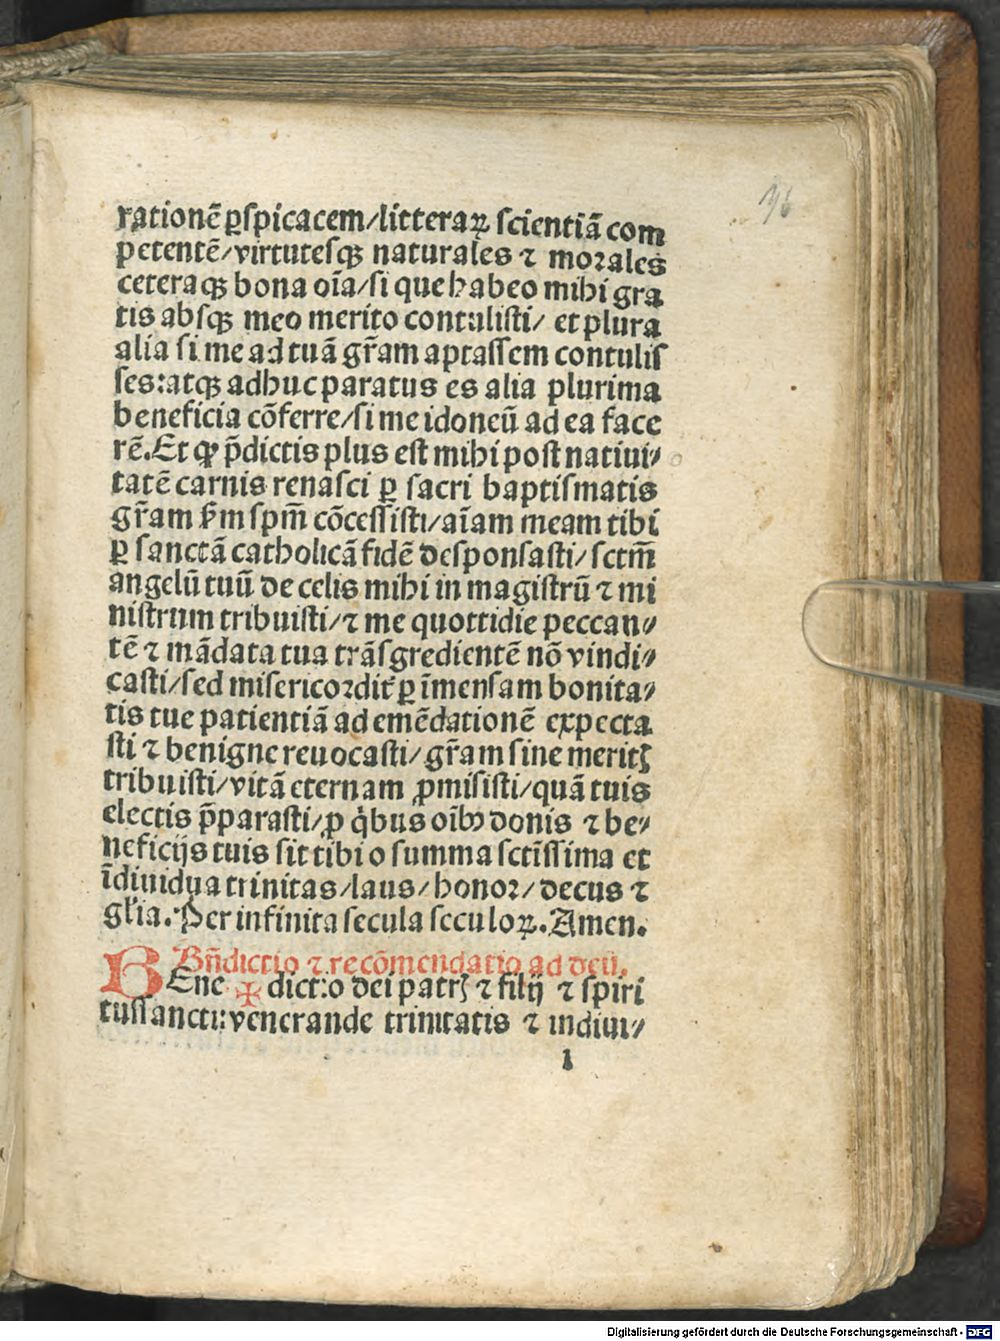 96
rationē ꝑspicacem/litteraꝝ scientiā com
petentē/virtutesqꝫ naturales ⁊ morales
ceteraqꝫ bona oīa/si que habeo mihi gra
tis absqꝫ meo merito contulisti/ et plura
alia si me ad tuā gr̄am aptassem contulis
ses:atqꝫ adhuc paratus es alia plurima
beneficia cōferre/si me idoneū ad ea face
rē.Et qꝫ p̄dictis plus est mihi post natiui⸗
tatē carnis renasci ꝑ sacri baptismatis
gr̄am ẜm spm̄ cōcessisti/aīam meam tibi
ꝑ sanctā catholicā fidē desponsasti/sctm̄
angelū tuū de celis mihi in magistrū ⁊ mi
nistrum tribuisti/⁊ me quottidie peccan⸗
tē ⁊ mādata tua trāsgredientē nō vindi⸗
casti/sed misericordit᷑ ꝑ īmensam bonita⸗
tis tue patientiā ad emēdationē expecta
sti ⁊ benigne reuocasti/gr̄am sine meritꝭ
tribuisti/vitā eternam ꝓmisisti/quā tuis
electis p̄parasti/ꝓ qͥbus oībꝰ donis ⁊ be⸗
neficijs tuis sit tibi o summa sctīssima et
īdiuidua trinitas/laus/honor/decus ⁊
gl̄ia. Per infinita secula seculoꝝ. Amen.
Bn̄dictio ⁊ recōmendatio ad deū.
BEne ✠ dictio dei patrꝭ ⁊ filij ⁊ spiri
tussancti:venerande trinitatis ⁊ indiui⸗
l
Digitalisierung gefördert durch die Deutsche Forschungsgemeinschaft - DFG